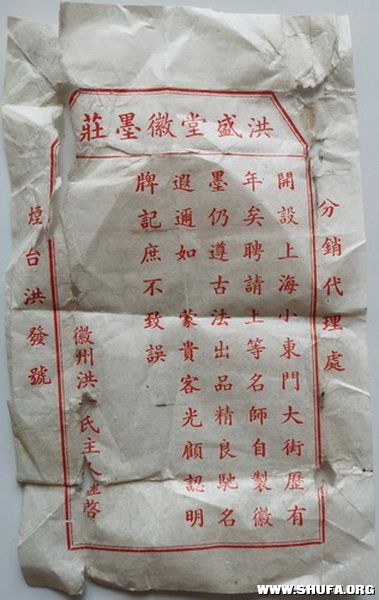 洪盛堂徽墨莊
分銷代理處
開設上海小東門大街歷有
年矣聘請上等名師自製徽
墨仍遵古法出品精良馳名
遐邇如 蒙貴客光顧認明
牌記庶不致誤
徽州洪氏主人謹啓
煙台洪發號
WWW.SHUFA.ORG